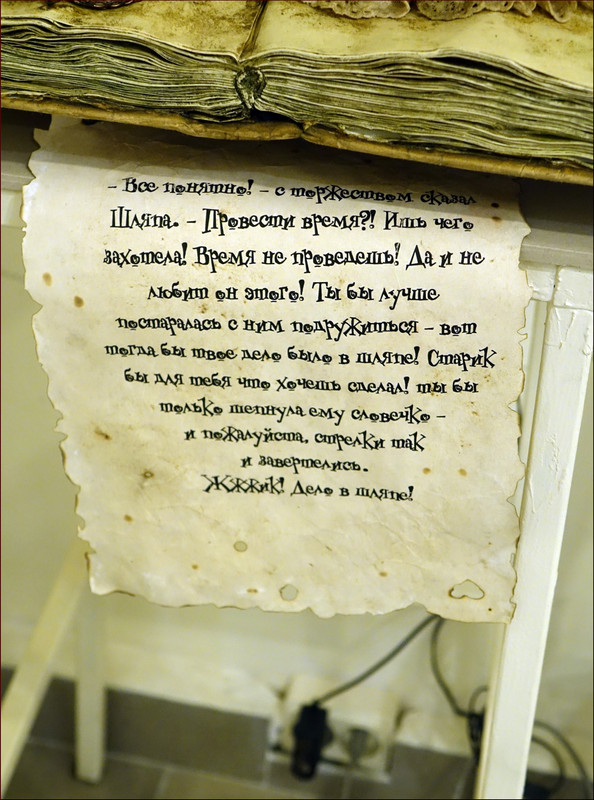 – Все понятно! – с торжеством сказал
Шляпа. – Провести время?! Ишь чего
захотела! Время не проведешь! Да и не
любит он этого! Ты бы лучше
постаралась с ним подружиться – вот
тогда бы твое дело было в шляпе! Старик
бы для тебя что хочешь сделал! ты бы
только шепнула ему словечко –
и пожалуйста, стрелки так
и завертелись.
Жжжик! Дело в шляпе!